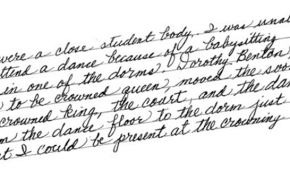 were a close student body. I was una
ttend a dance because of a babysitting
in one of the dorms. Dorothy Benton,
to be crowned queen, moved the
crowned king, the court, and the dan
m the dance floor to the dorm just
t I could be present at the crowning